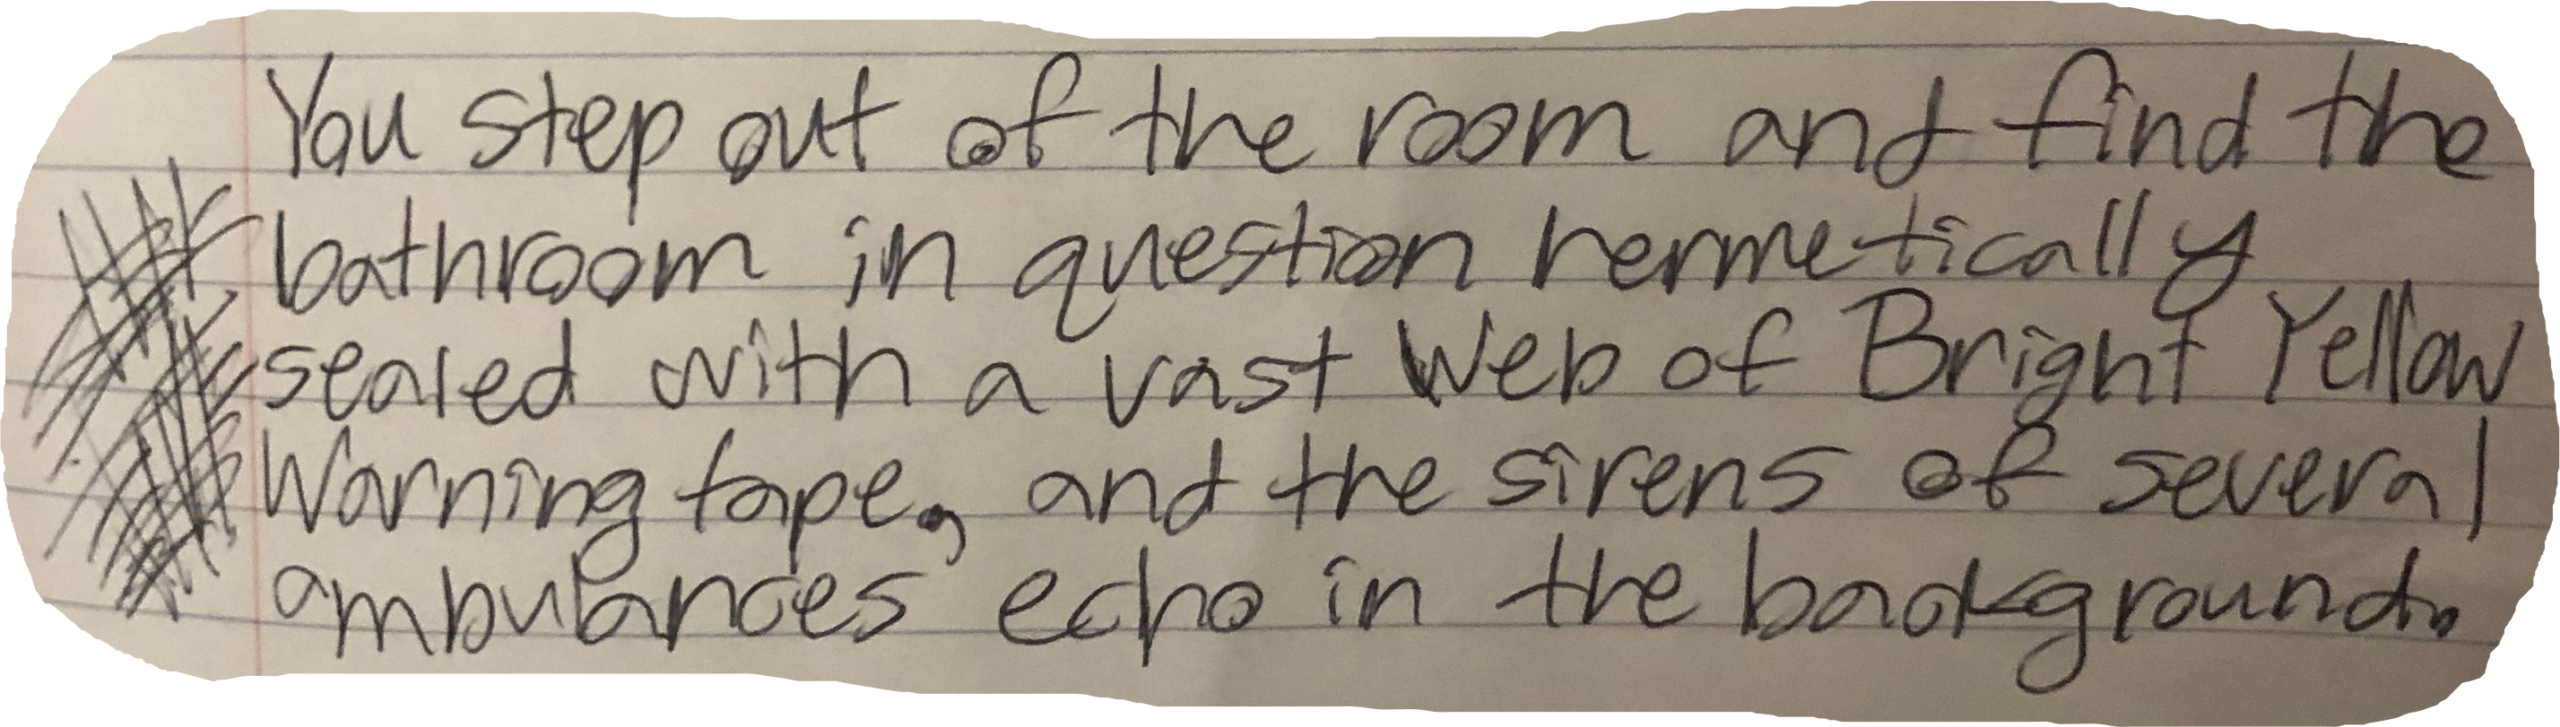 You step out of the room and find the
bathroom in question hermetically
sealed with a vast Web of Bright Yellow
Warning tape, and the sirens of several
ambulances echo in the background.